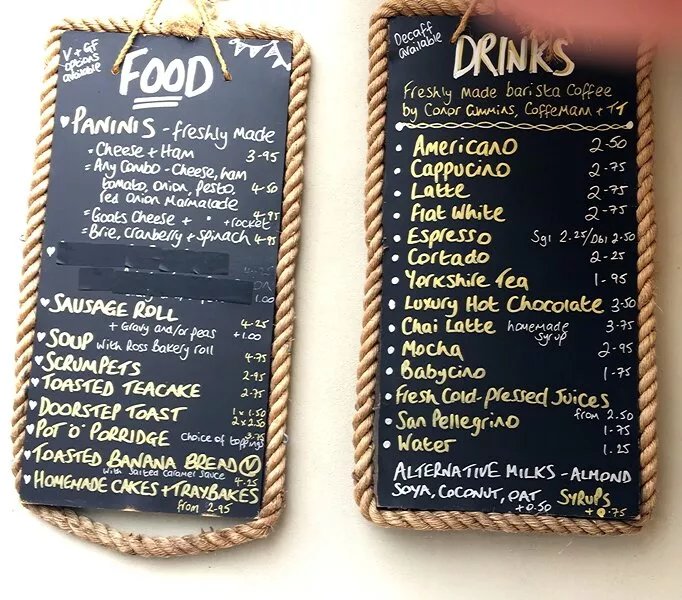 V + GF
options
available
FOOD
PANINIS - freshly Made
Cheese + Ham 3-95
Any Combo - Cheese, ham
tomato, onion, pesto, 4-50
red onion Marmalade
Goats Cheese + " + rocket 4-95
Brie, cranberry + spinach 4-95
1.00
SAUSAGE ROLL 4-25
+ Gravy and/or peas +1.00
SOUP with Ross Bakery roll 4-75
SCRUMPETS 2-95
TOASTED TEACAKE 2-75
DOORSTEP TOAST 1 x 1.50
2 x 2.50
POT 'O' PORRIDGE choice of toppings 3-75
TOASTED BANANA BREAD V
with salted caramel sauce 4-25
HOMEMADE CAKES + TRAYBAKES
from 2-95
Decaff
available
DRINKS
Freshly made barista Coffee
by Conor Cummins, CoffeeMann + TT
Americano 2-50
Cappucino 2-75
Latte 2-75
Flat White 2-75
Espresso Sgl 2.25/Dbl 2-50
Cortado 2-25
Yorkshire Tea 1-95
Luxury Hot Chocolate 3-50
Chai Latte homemade syrup 3-75
Mocha 2-95
Babycino 1-75
Fresh Cold-pressed Juices
from 2.50
San Pellegrino 1-75
Water 1.25
ALTERNATIVE MILKS - ALMOND
SOYA, COCONUT, OAT SYRUPS
+0.50 +0.75